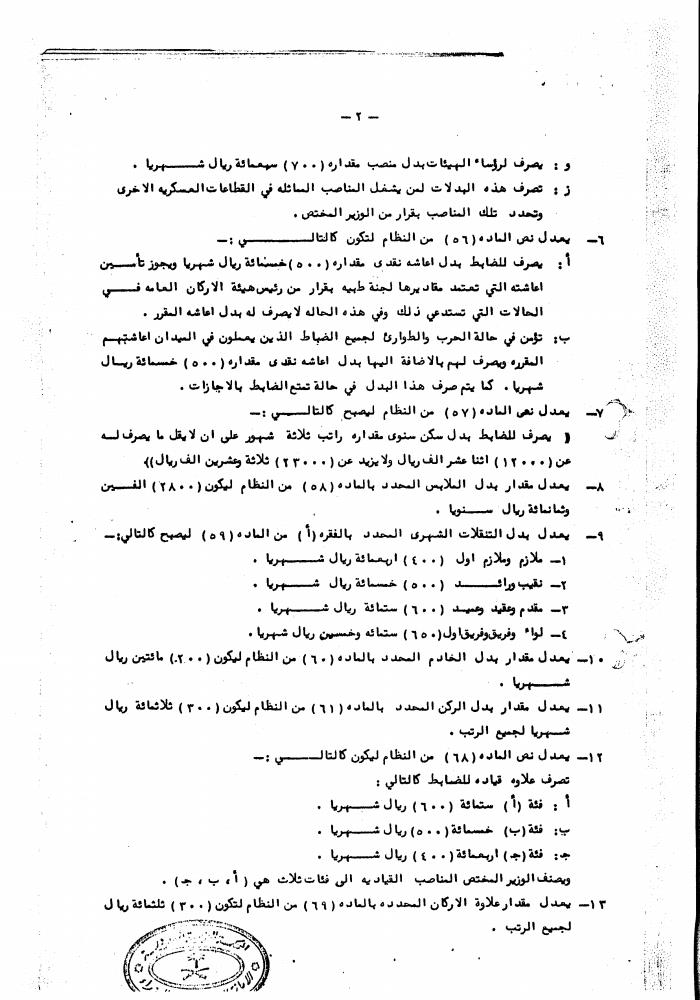 — ٢ —
و : يصرف لرؤساء الهيئات بدل منصب مقداره (٧٠٠) سبعمائة ريال شهريا .
ز : تصرف هذه البدلات لمن يشغل المناصب المماثله في القطاعات العسكريه الاخرى
وتحدد تلك المناصب بقرار من الوزير المختص .
٦— يعدل نص الماده (٥٦) من النظام لتكون كالتالي :—
أ : يصرف للضابط بدل اعاشه نقدى مقداره (٥٠٠) خمسمائة ريال شهريا ويجوز تأمين
اعاشته التي تعتمد مقاديرها لجنة طبيه بقرار من رئيس هيئة الاركان العامه في
الحالات التي تستدعي ذلك وفي هذه الحاله لا يصرف له بدل اعاشه المقرر .
ب: تؤمن في حالة الحرب والطوارئ لجميع الضباط الذين يعملون في الميدان اعاشتهم
المقرره ويصرف لهم بالاضافة اليها بدل اعاشه نقدى مقداره (٥٠٠) خمسمائة ريال
شهريا . كما يتم صرف هذا البدل في حالة تمتع الضابط بالاجازات .
٧— يعدل نص الماده (٥٧) من النظام ليصبح كالتالي :—
(( يصرف للضابط بدل سكن سنوى مقداره راتب ثلاثة شهور على ان لا يقل ما يصرف له
عن (١٢٠٠٠) اثنا عشر الف ريال ولا يزيد عن (٢٣٠٠٠) ثلاثة وعشرين الف ريال))
٨— يعدل مقدار بدل الملابس المحدد بالماده (٥٨) من النظام ليكون (٢٨٠٠) الفين
وثمانمائة ريال سنويا .
٩— يعدل بدل التنقلات الشهرى المحدد بالفقره (أ) من الماده (٥٩) ليصبح كالتالي:—
١— ملازم وملازم اول (٤٠٠) اربعمائة ريال شهريا .
٢— نقيب ورائد (٥٠٠) خمسمائة ريال شهريا .
٣— مقدم وعقيد وعميد (٦٠٠) ستمائة ريال شهريا .
٤— لواء وفريق وفريق اول (٦٥٠) ستمائه وخمسين ريال شهريا .
١٠— يعدل مقدار بدل الخادم المحدد بالماده (٦٠) من النظام ليكون (٢٠٠) مائتين ريال
شهريا .
١١— يعدل مقدار بدل الركن المحدد بالماده (٦١) من النظام ليكون (٣٠٠) ثلاثمائة ريال
شهريا لجميع الرتب .
١٢— يعدل نص الماده (٦٨) من النظام ليكون كالتالي :—
تصرف علاوه قياده للضابط كالتالي :
أ : فئة (أ) ستمائة (٦٠٠) ريال شهريا .
ب: فئة (ب) خمسمائة (٥٠٠) ريال شهريا .
جـ: فئة (جـ) اربعمائة (٤٠٠) ريال شهريا .
ويصنف الوزير المختص المناصب القياديه الى فئات ثلاث هي (أ ، ب ، جـ) .
١٣— يعدل مقدار علاوة الاركان المحدده بالماده (٦٩) من النظام لتكون (٣٠٠) ثلثمائة ريال
لجميع الرتب .